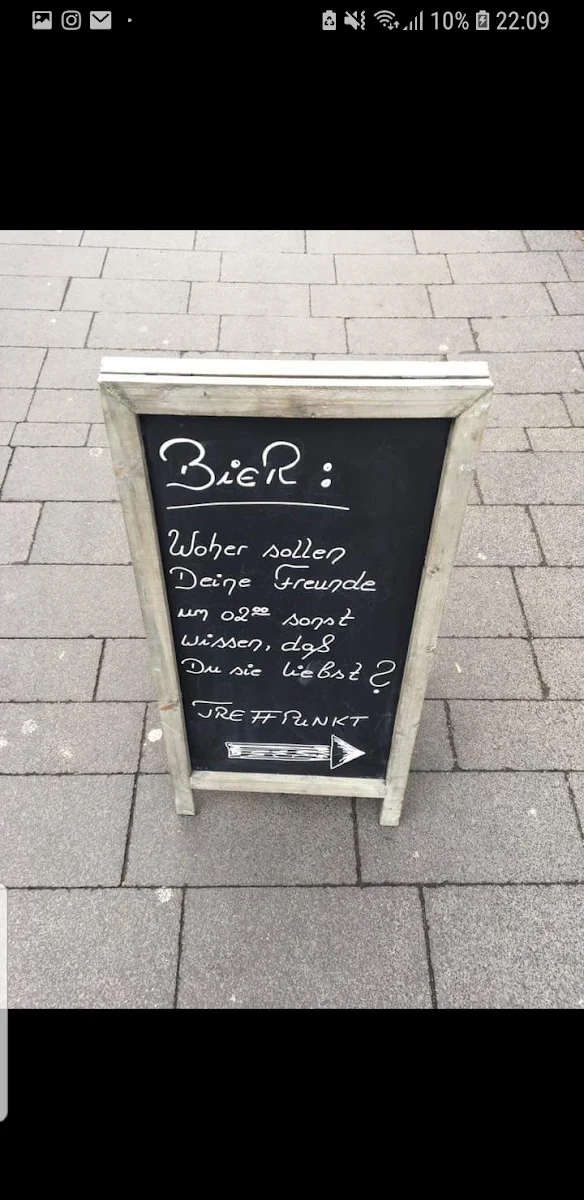 10% 22:09
BieR:
Woher sollen
Deine Freunde
um 02⁰⁰ sonst
wissen, daß
Du sie liebst?
TREFFPUNKT